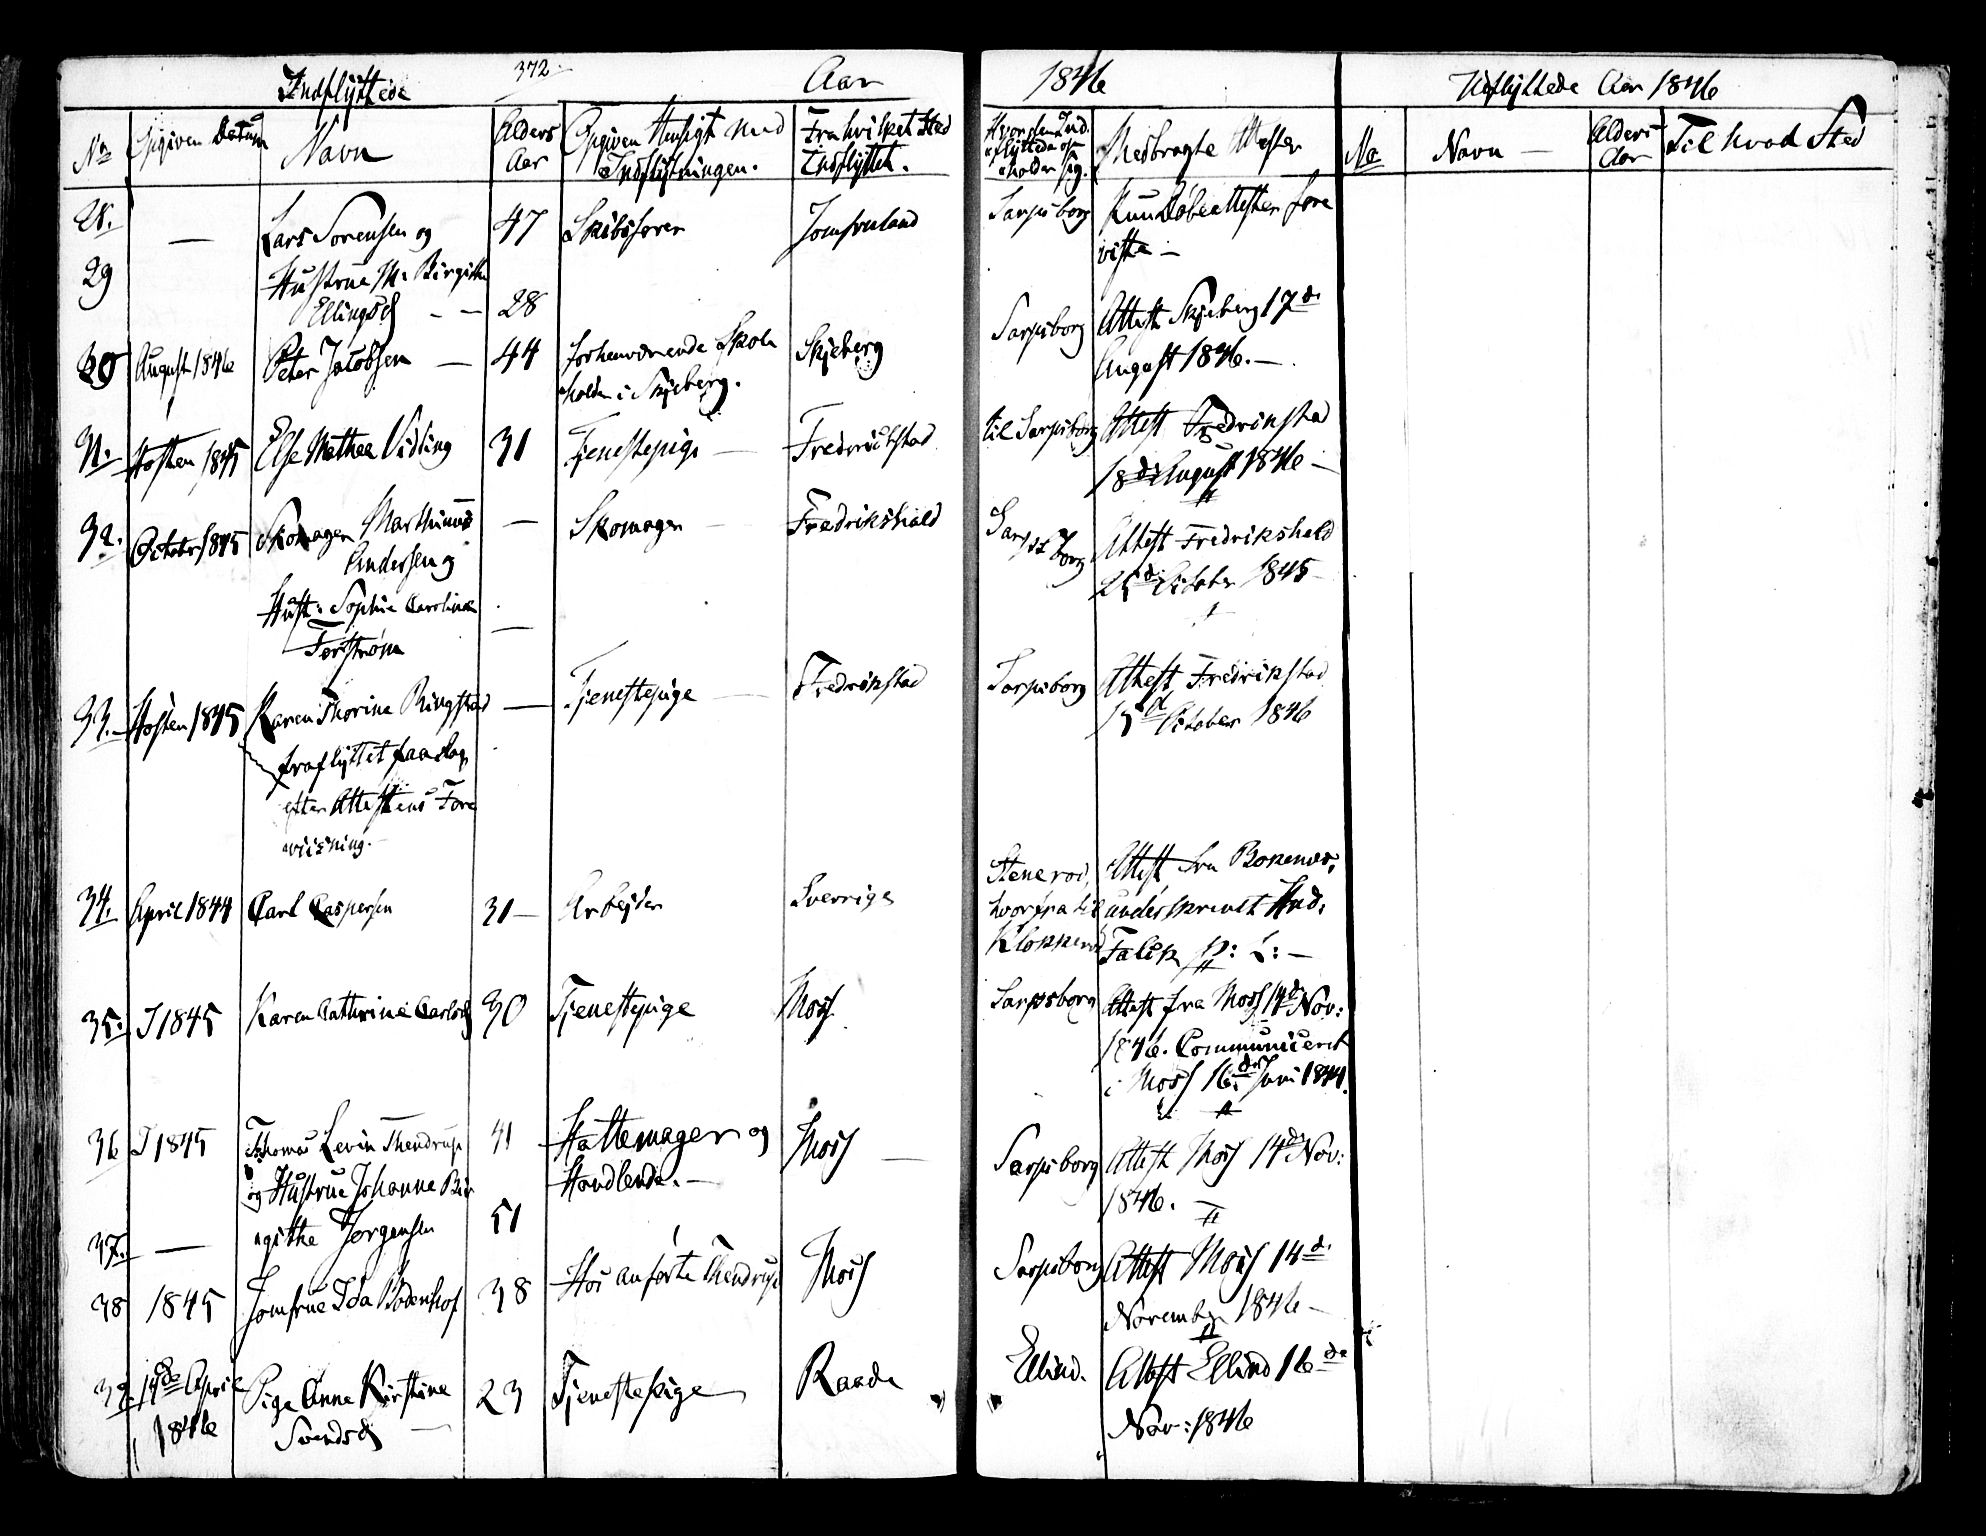 Indflyttede 372 Aar 1846 Udflyttede Aar 1846
No Opgiven Datum Navn Alders Aar Opgiven Hensigt med Indflytningen. Fra hvilket Sted Indflyttet. Hvor den Indflyttede opholder sig. Medbragte Attester No Navn Alders Aar Til hvad Sted
28. — Lars Sørensen og 47 Skibsfører Jomfruland Sarpsborg Kun Døbeattester fore
viste —
29 Hustrue M. Birgitte
Ellingsd — — 28
30 August 1846 Peter Jacobsen — 44 forhenværende Skole Skjeberg Sarpsborg Attest Skjeberg 17de
holder i Skjeberg. August 1846. —
31. Høsten 1845 Else Mathea Vidling 31 Tjenestepige — Fredrikstad til Sarpsborg Attest Fredrikstad
18de August 1846 —
32. October 1845 Skomager Marthinus — Skomager — Fredrikshald Sarpsborg Attest Fredrikshald
Andersen og 25de October 1845
Hust: Sophie Caroline —
Terström
33. Høsten 1845 Karen Thorine Ringstad — Tjenestepige — Fredrikstad Sarpsborg Attest Fredrikstad
fraflyttet paa Dag 15d October 1846
efter Attestens Fore
viisning. —
34. April 1844 Carl Caspersen 31 — Arbejder Sverrige Stenerød, Attest fra Bokenæs,
hvorfra til underskrevet And.
Klokkerød Falck p: l: —
35. I 1845 Karen Cathrine Carlsd 30 Tjenestepige Moss Sarpsborg Attest fra Moss 14de Nov:
1846. Communiceret
i Moss 16de Juni 1844.
36 I 1845 Thomas Levin Thendrup 41 Hattemager og Moss — Sarpsborg Attest Moss 14de Nov:
og Hustrue Johanne Bir Handlende. — 1846. —
37. — gitthe Jørgensen 51
38 1845 Jomfrue Ida Bodenhof 38 Hos anførte Thendrup Moss Sarpsborg Attest Moss 14de
November 1846 —
39. 14de April Pige Anne Kirstine 23 Tjenestepige Raade Ellind. Attest Ellind 16de
1846 Svendsd — Nov: 1846